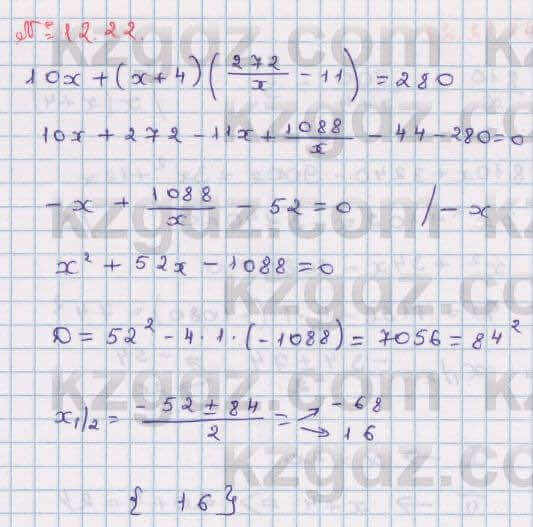 № 12.22.
10x + (x+4) (272/x - 11) = 280
10x + 272 - 11x + 1088/x - 44 - 280 = 0
- x + 1088/x - 52 = 0 / - x
x² + 52x - 1088 = 0
D = 52² - 4 · 1 · (-1088) = 7056 = 84²
x₁/₂ = (-52 ± 84)/2 = → -68
→ 16
{ 16 }
kzgdz.com